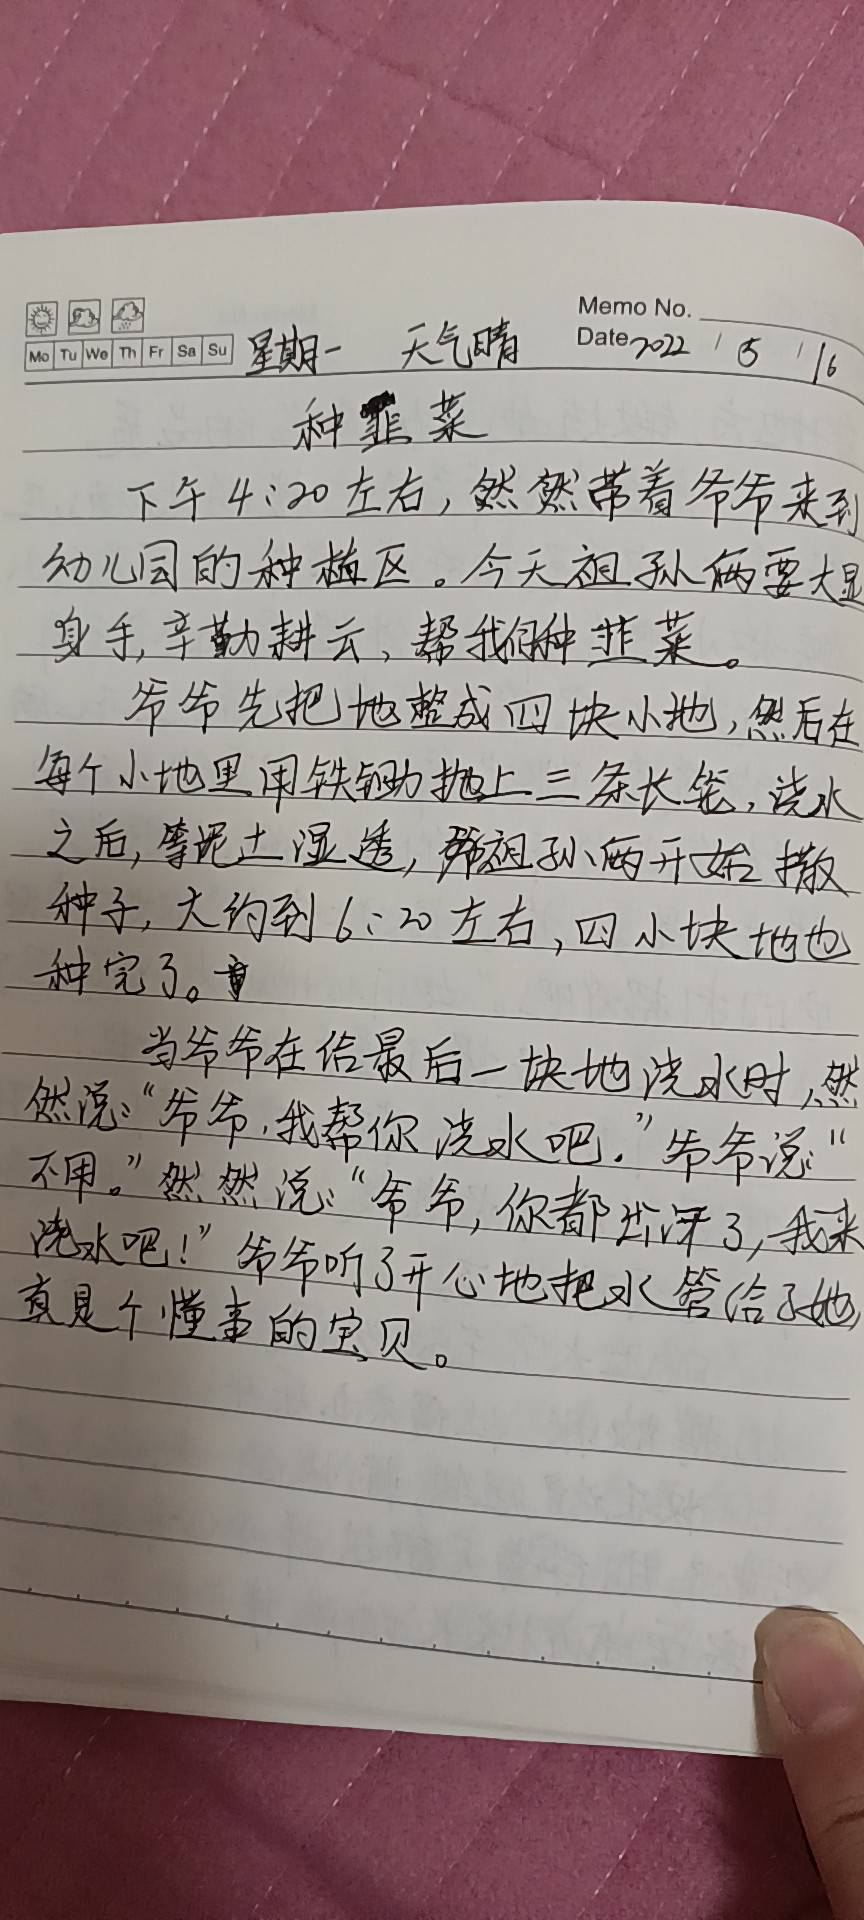 Memo No.
Mo Tu We Th Fr Sa Su 星期一 天气晴 Date 2022 / 5 / 16
种韭菜
下午4:20左右,然然带着爷爷来到
幼儿园的种植区。今天祖孙俩要大显
身手,辛勤耕云、帮我们种韭菜。
爷爷先把地整成四块小地,然后在
每个小地里用铁锄抛上三条长笼,浇水
之后,等泥土湿透,祖孙俩开始撒
种子,大约到6:20左右,四小块地也
种完了。
当爷爷在给最后一块地浇水时,然
然说:“爷爷,我帮你浇水吧.”爷爷说:“
不用。”然然说:“爷爷,你都出汗了,我来
浇水吧!”爷爷听了开心地把水管给了她,
真是个懂事的宝贝。